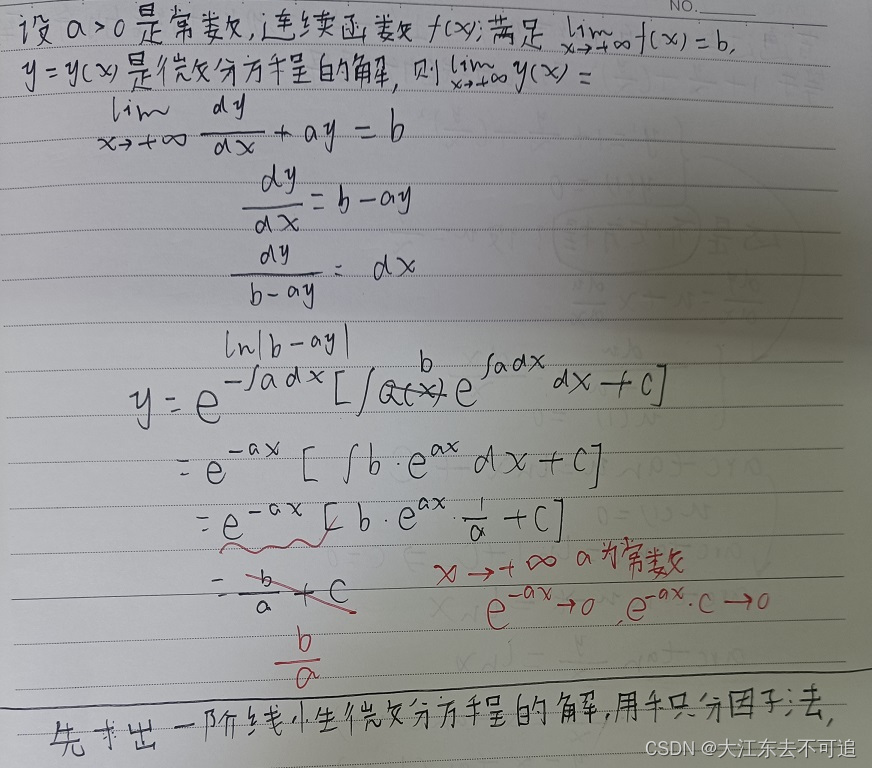 NO.
设 a>0 是常数,连续函数 f(x)满足 lim x→+∞ f(x)=b,
y=y(x) 是微分方程的解,则 lim x→+∞ y(x)=
lim x→+∞ dy/dx + ay = b
dy/dx = b-ay
dy/(b-ay) = dx
ln|b-ay|
y = e^{-∫adx} [∫b e^{∫adx} dx + C]
= e^{-ax} [∫b·e^{ax} dx + C]
= e^{-ax} [b·e^{ax}·1/a + C]
= b/a + C
x→+∞ a为常数
e^{-ax}→0, e^{-ax}·C→0
b/a
先求出一阶线性微分方程的解,用积分因子法,
CSDN @大江东去不可追